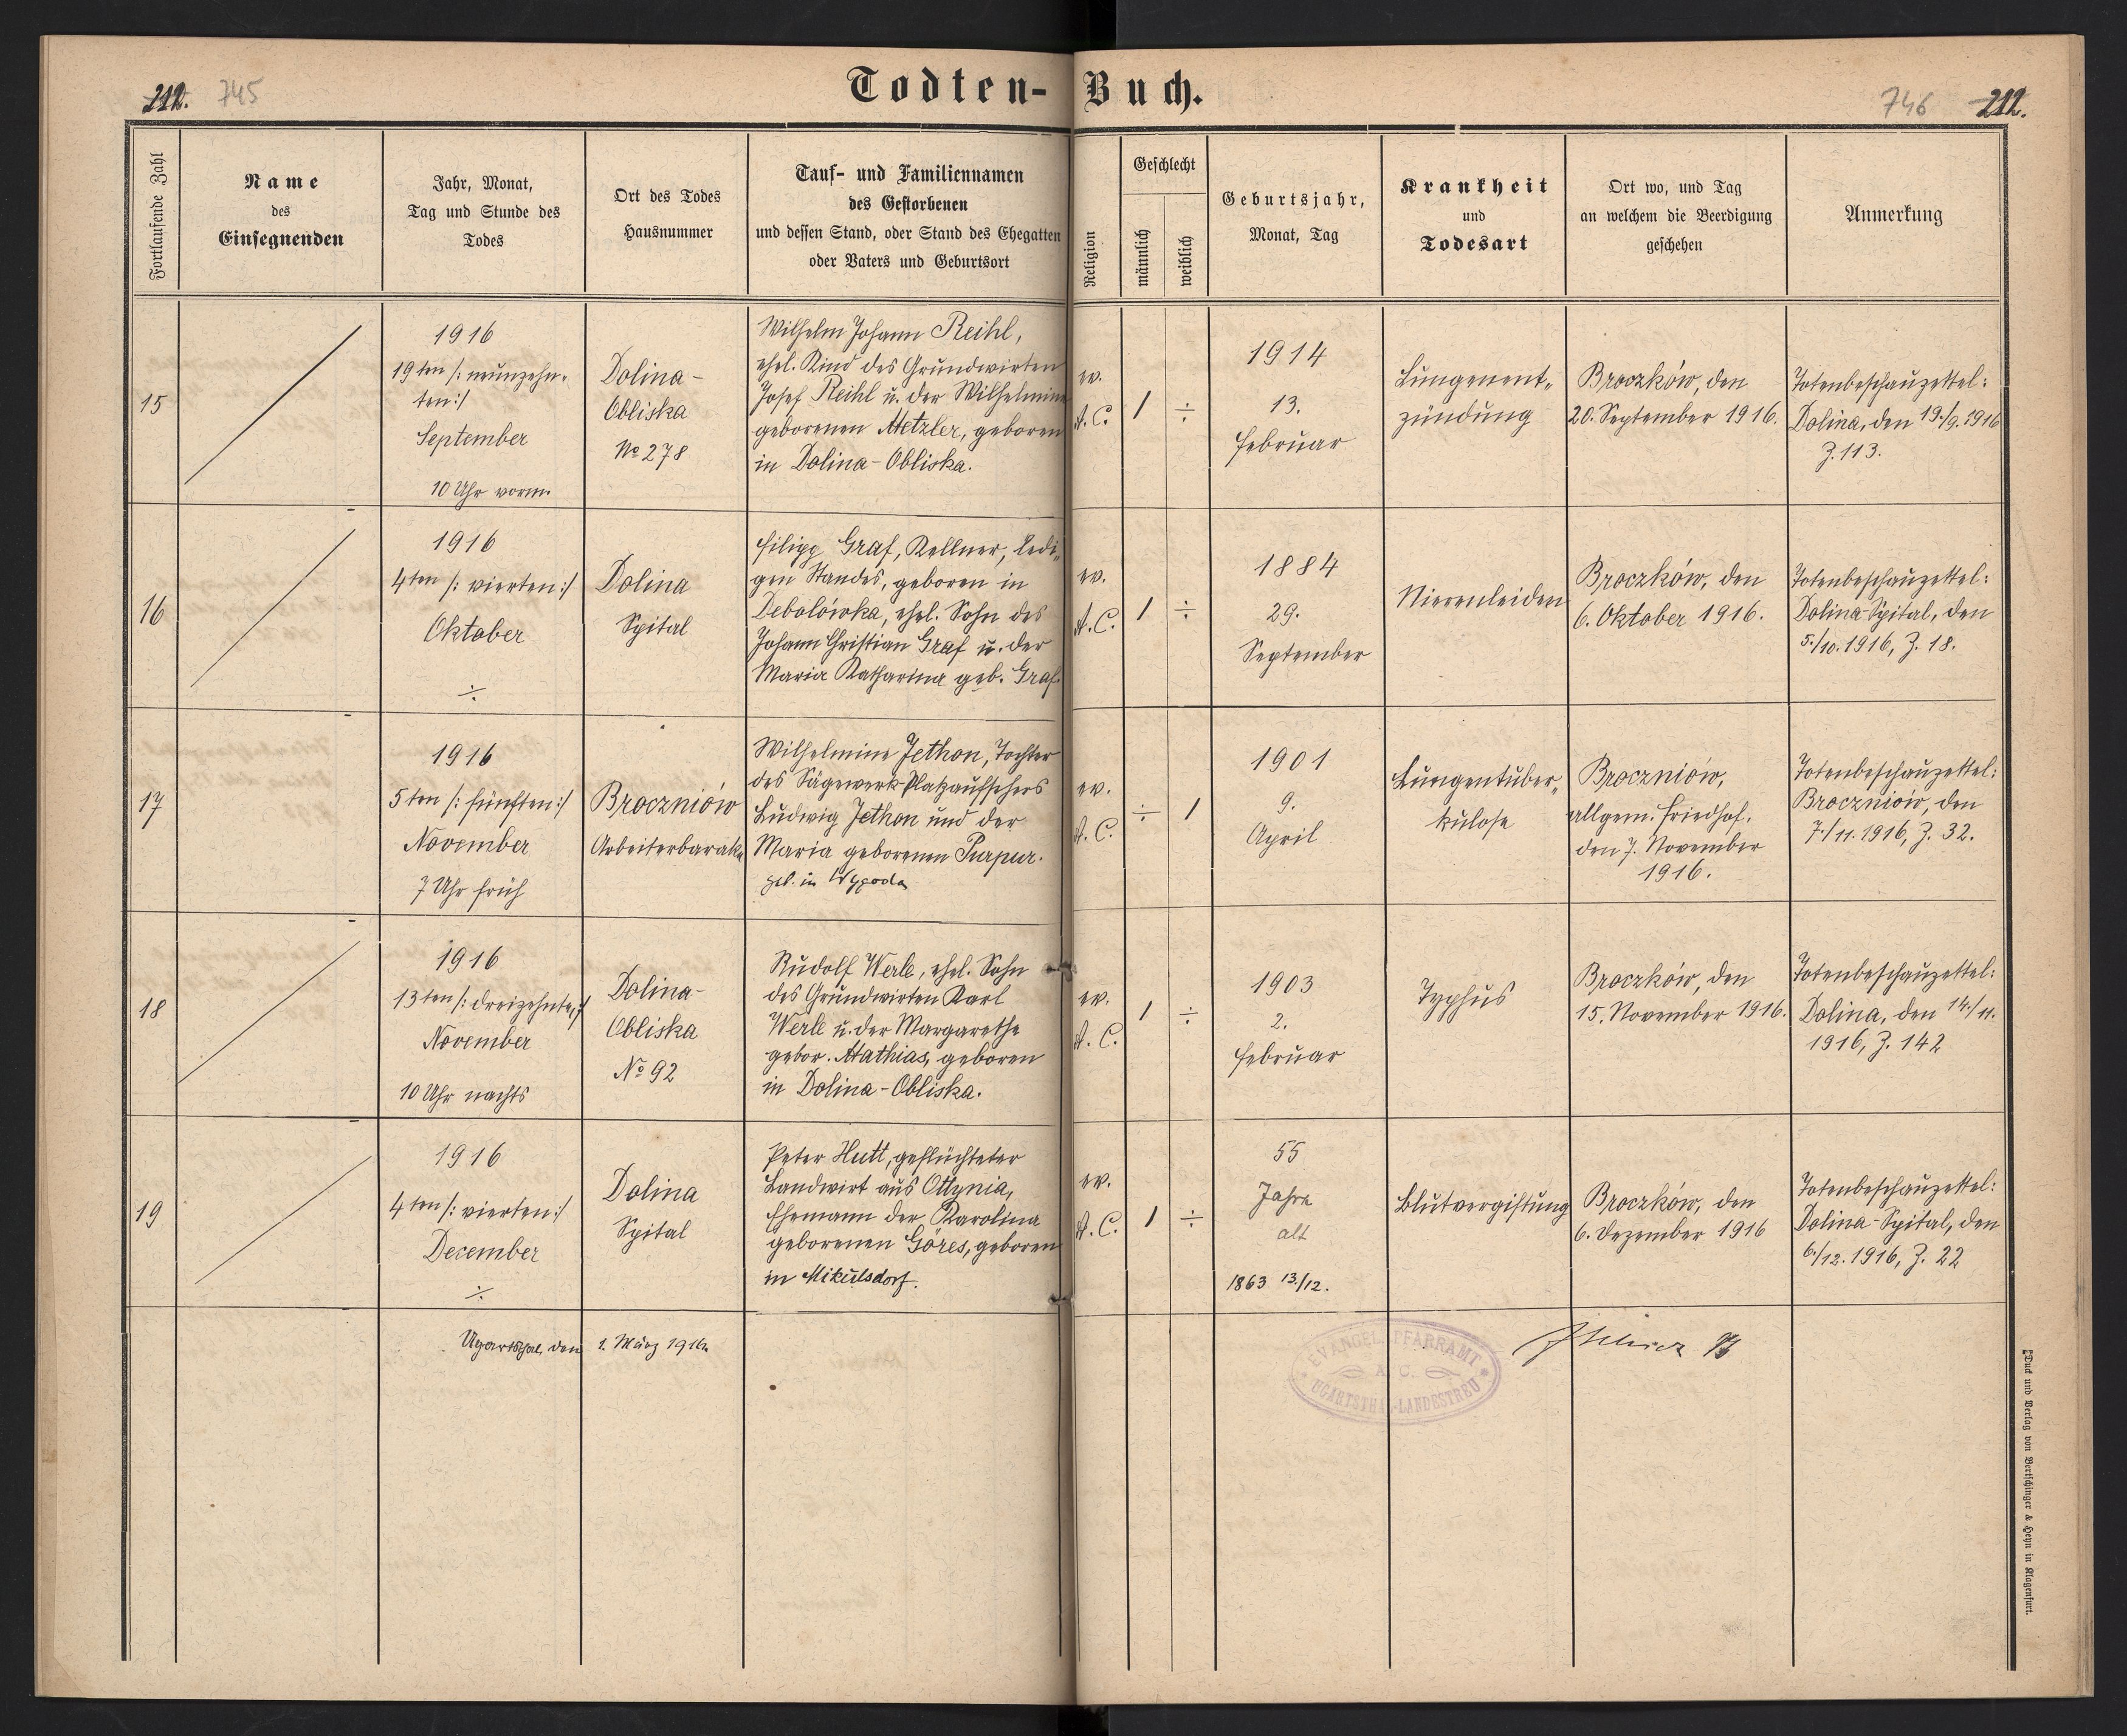 212. 745
Todten-Buch.
746 212.
Fortlaufende Zahl
Name
des
Einsegnenden
Jahr, Monat,
Tag und Stunde des
Todes
Ort des Todes
Hausnummer
Tauf- und Familiennamen
des Gestorbenen
und dessen Stand, oder Stand des Ehegatten
oder Vaters und Geburtsort
Religion
Geschlecht
männlich
weiblich
Geburtsjahr,
Monat, Tag
Krankheit
und
Todesart
Ort wo, und Tag
an welchem die Beerdigung
geschehen
Anmerkung
15
1916
19ten /: neunzehn-
ten :/
September
10 Uhr vorm.
Dolina-
Obliska
No 278
Wilhelm Johann Reihl,
ehel. Kind des Grundwirten
Josef Reihl u. der Wilhelmine
geborenen Metzler, geboren
in Dolina-Obliska.
ev.
A.C.
1
÷
1914
13.
Februar
Lungenent-
zündung
Broczków, den
20. September 1916.
Totenbeschauzettel:
Dolina, den 19./9. 1916
Z. 113.
16
1916
4ten /: vierten :/
Oktober
÷
Dolina
Spital
Filipp Graf, Kellner, ledi-
gen Standes, geboren in
Debolówka, ehel. Sohn des
Johann Christian Graf u. der
Maria Katharina geb. Graf.
ev.
A.C.
1
÷
1884
29.
September
Nierenleiden
Broczków, den
6. Oktober 1916.
Totenbeschauzettel:
Dolina-Spital, den
5./10. 1916, Z. 18.
17
1916
5ten /: fünften :/
November
7 Uhr früh
Broczniów
Arbeiterbarake
Wilhelmine Jethon, Tochter
des Sägewerk Platzaufsehers
Ludwig Jethon und der
Maria geborenen Purpur.
geb. in Wygoda
ev.
A.C.
÷
1
1901
9.
April
Lungentuber-
kulose
Broczniów,
allgem. Friedhof.
den 7. November
1916.
Totenbeschauzettel:
Broczniów, den
7./11. 1916, Z. 32.
18
1916
13ten /: dreizehnten :/
November
10 Uhr nachts
Dolina-
Obliska
No 92
Rudolf Werle, ehel. Sohn
des Grundwirten Karl
Werle u. der Margarethe
gebor. Mathias, geboren
in Dolina-Obliska.
ev.
A.C.
1
÷
1903
2.
Februar
Typhus
Broczków, den
15. November 1916.
Totenbeschauzettel:
Dolina, den 14./11.
1916, Z. 142
19
1916
4ten /: vierten :/
December
÷
Dolina
Spital
Peter Hutt, geflüchteter
Landwirt aus Ottynia,
Ehemann der Karolina
geborenen Göres, geboren
in Mikulsdorf.
ev.
A.C.
1
÷
55
Jahre
alt
1863 13./12.
Blutvergiftung
Broczków, den
6. Dezember 1916
Totenbeschauzettel:
Dolina-Spital, den
6./12. 1916, Z. 22
Ugartsthal, den 1. März 1916.
EVANGEL. PFARRAMT
A. C.
UGARTSTHAL-LANDESTREU
Druck und Verlag von Bertschinger & Heyn in Klagenfurt.